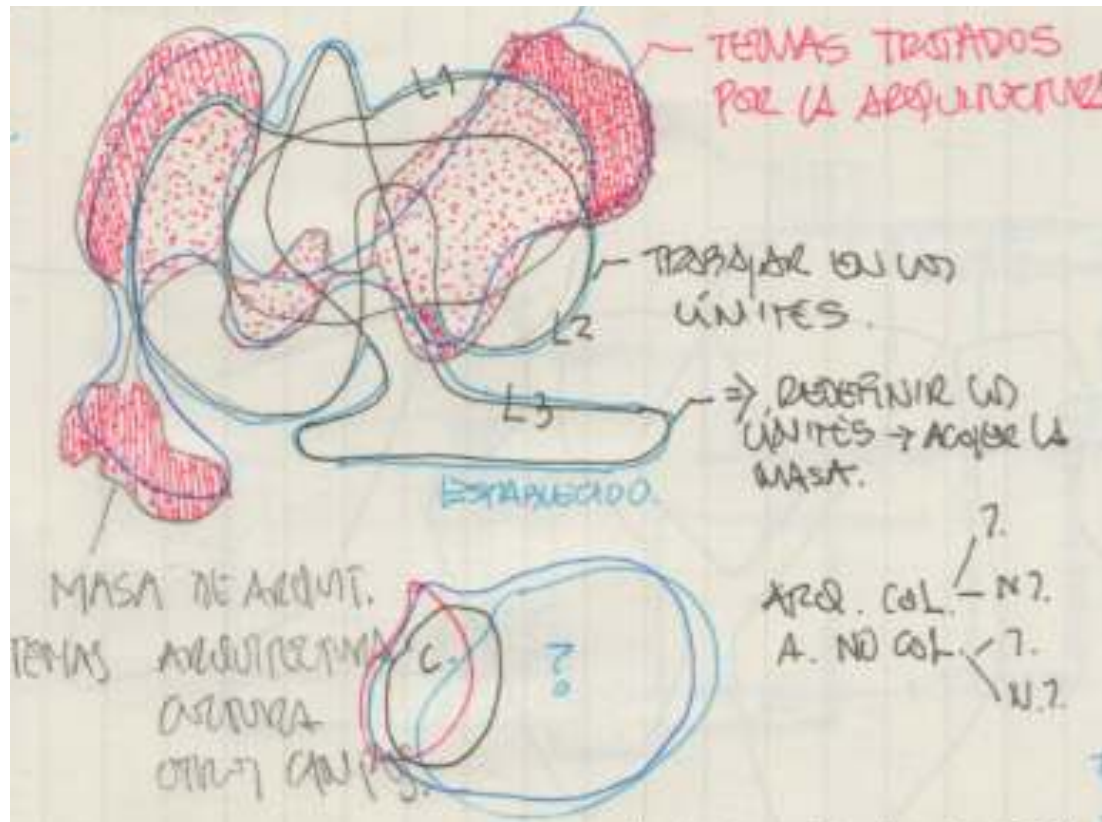 TEMAS TRATADOS
POR LA ARQUITECTURA
L1
TRABAJAR EN LOS
LÍMITES.
L2
L3
=> REDEFINIR LOS
LÍMITES → ACOGER LA
MASA.
ESTABLECIDO.
MASA DE ARQUIT.
TEMAS ARQUITECTURA
CULTURA
OTROS CAMPOS.
C.
?
ARQ. COL. ?.
N?.
A. NO COL. ?.
N.?